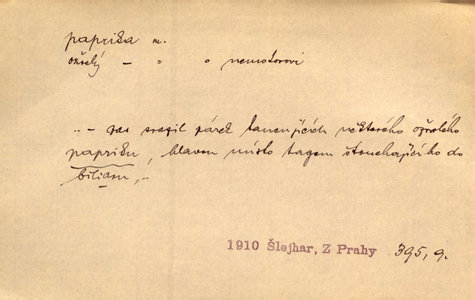 paprika m.
ožralý – " o nemotorovi
„– zas srazil párek tancujících některého ožralého
papriku, hlavou místo tagem štouchajícího do
biliaru, „
1910 Šlejhar, Z Prahy 395, 9.